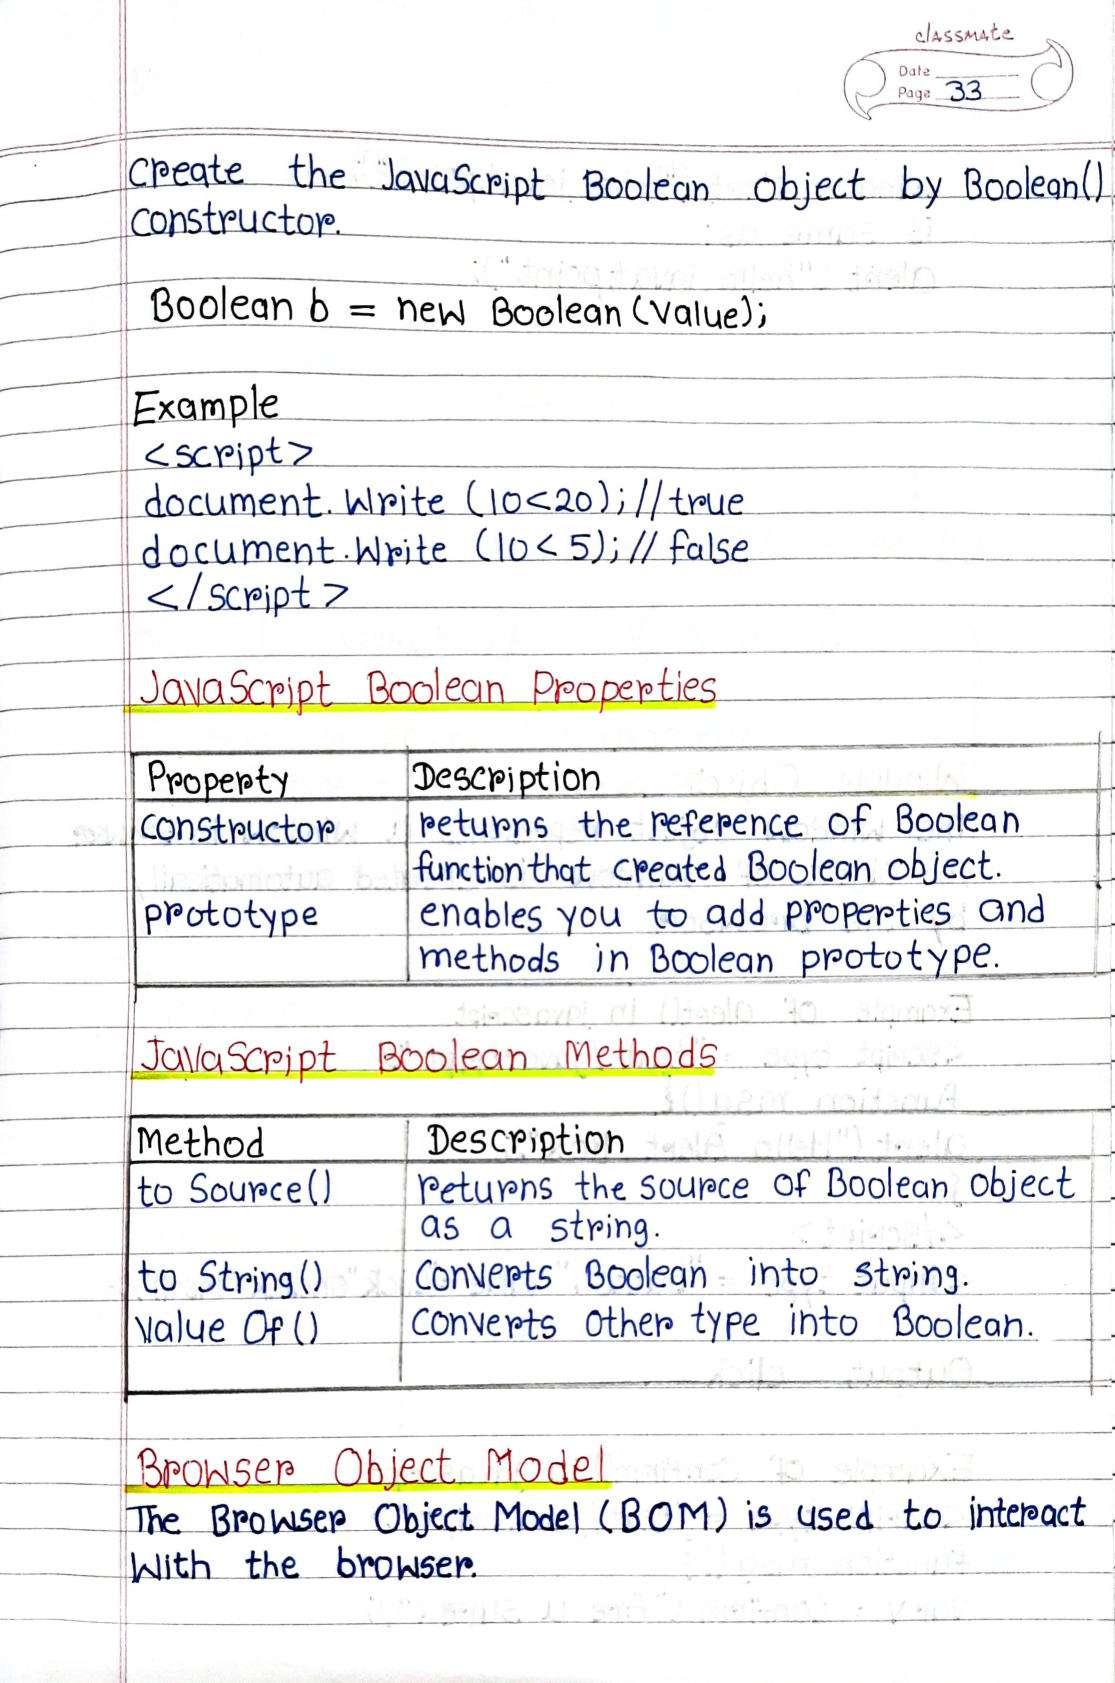 classmate
Date
Page 33
Create the JavaScript Boolean object by Boolean()
constructor.
Boolean b = new Boolean (value);
Example
<script>
document. Write (10<20); // true
document. Write (10<5); // false
</script>
JavaScript Boolean Properties
Property Description
constructor returns the reference of Boolean
function that created Boolean object.
prototype enables you to add properties and
methods in Boolean prototype.
JavaScript Boolean Methods
Method Description
to Source() returns the source of Boolean object
as a string.
to String() converts Boolean into string.
value Of() converts other type into Boolean.
Browser Object Model
The Browser Object Model (BOM) is used to interact
with the browser.